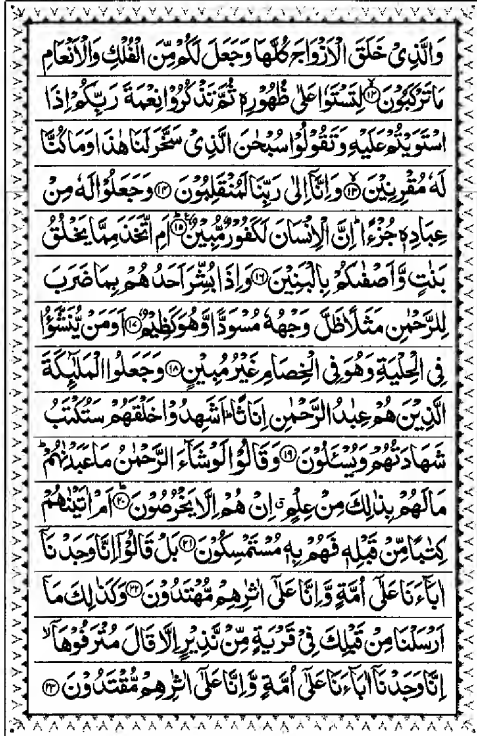 وَالَّذِىْ خَلَقَ الْاَزْوَاجَ كُلَّهَا وَجَعَلَ لَكُمْ مِّنَ الْفُلْكِ وَالْاَنْعَامِ
مَا تَرْكَبُوْنَ ۙ‏﴿۱۲﴾ لِتَسْتَوٗا عَلٰى ظُهُوْرِهٖ ثُمَّ تَذْكُرُوْا نِعْمَةَ رَبِّكُمْ اِذَا
اسْتَوَيْتُمْ عَلَيْهِ وَتَقُوْلُوْا سُبْحٰنَ الَّذِىْ سَخَّرَ لَنَا هٰذَا وَمَا كُنَّا
لَهٗ مُقْرِنِيْنَ ۙ‏﴿۱۳﴾ وَاِنَّاۤ اِلٰى رَبِّنَا لَمُنْقَلِبُوْنَ ‏﴿۱۴﴾ وَجَعَلُوْا لَهٗ مِنْ
عِبَادِهٖ جُزْءًا ؕ اِنَّ الْاِنْسَانَ لَكَفُوْرٌ مُّبِيْنٌ ؕ‏﴿۱۵﴾ اَمِ اتَّخَذَ مِمَّا يَخْلُقُ
بَنٰتٍ وَّاَصْفٰٮكُمْ بِالْبَنِيْنَ ‏﴿۱۶﴾ وَاِذَا بُشِّرَ اَحَدُهُمْ بِمَا ضَرَبَ
لِلرَّحْمٰنِ مَثَلًا ظَلَّ وَجْهُهٗ مُسْوَدًّا وَّهُوَ كَظِيْمٌ ‏﴿۱۷﴾ اَوَمَنْ يُّنَشَّؤُا
فِى الْحِلْيَةِ وَهُوَ فِى الْخِصَامِ غَيْرُ مُبِيْنٍ ‏﴿۱۸﴾ وَجَعَلُوا الْمَلٰٓٮِٕكَةَ
الَّذِيْنَ هُمْ عِبٰدُ الرَّحْمٰنِ اِنَاثًا ؕ اَشَهِدُوْا خَلْقَهُمْ ؕ سَتُكْتَبُ
شَهَادَتُهُمْ وَيُسْــَٔلُوْنَ ‏﴿۱۹﴾ وَقَالُوْا لَوْ شَآءَ الرَّحْمٰنُ مَا عَبَدْنٰهُمْ ؕ
مَا لَهُمْ بِذٰلِكَ مِنْ عِلْمٍ اِنْ هُمْ اِلَّا يَخْرُصُوْنَ ؕ‏﴿۲۰﴾ اَمْ اٰتَيْنٰهُمْ
كِتٰبًا مِّنْ قَبْلِهٖ فَهُمْ بِهٖ مُسْتَمْسِكُوْنَ ‏﴿۲۱﴾ بَلْ قَالُوْۤا اِنَّا وَجَدْنَاۤ
اٰبَآءَنَا عَلٰٓى اُمَّةٍ وَّاِنَّا عَلٰٓى اٰثٰرِهِمْ مُّهْتَدُوْنَ ‏﴿۲۲﴾ وَكَذٰلِكَ مَاۤ
اَرْسَلْنَا مِنْ قَبْلِكَ فِىْ قَرْيَةٍ مِّنْ نَّذِيْرٍ اِلَّا قَالَ مُتْرَفُوْهَاۤ ۙ
اِنَّا وَجَدْنَاۤ اٰبَآءَنَا عَلٰٓى اُمَّةٍ وَّاِنَّا عَلٰٓى اٰثٰرِهِمْ مُّقْتَدُوْنَ ‏﴿۲۳﴾